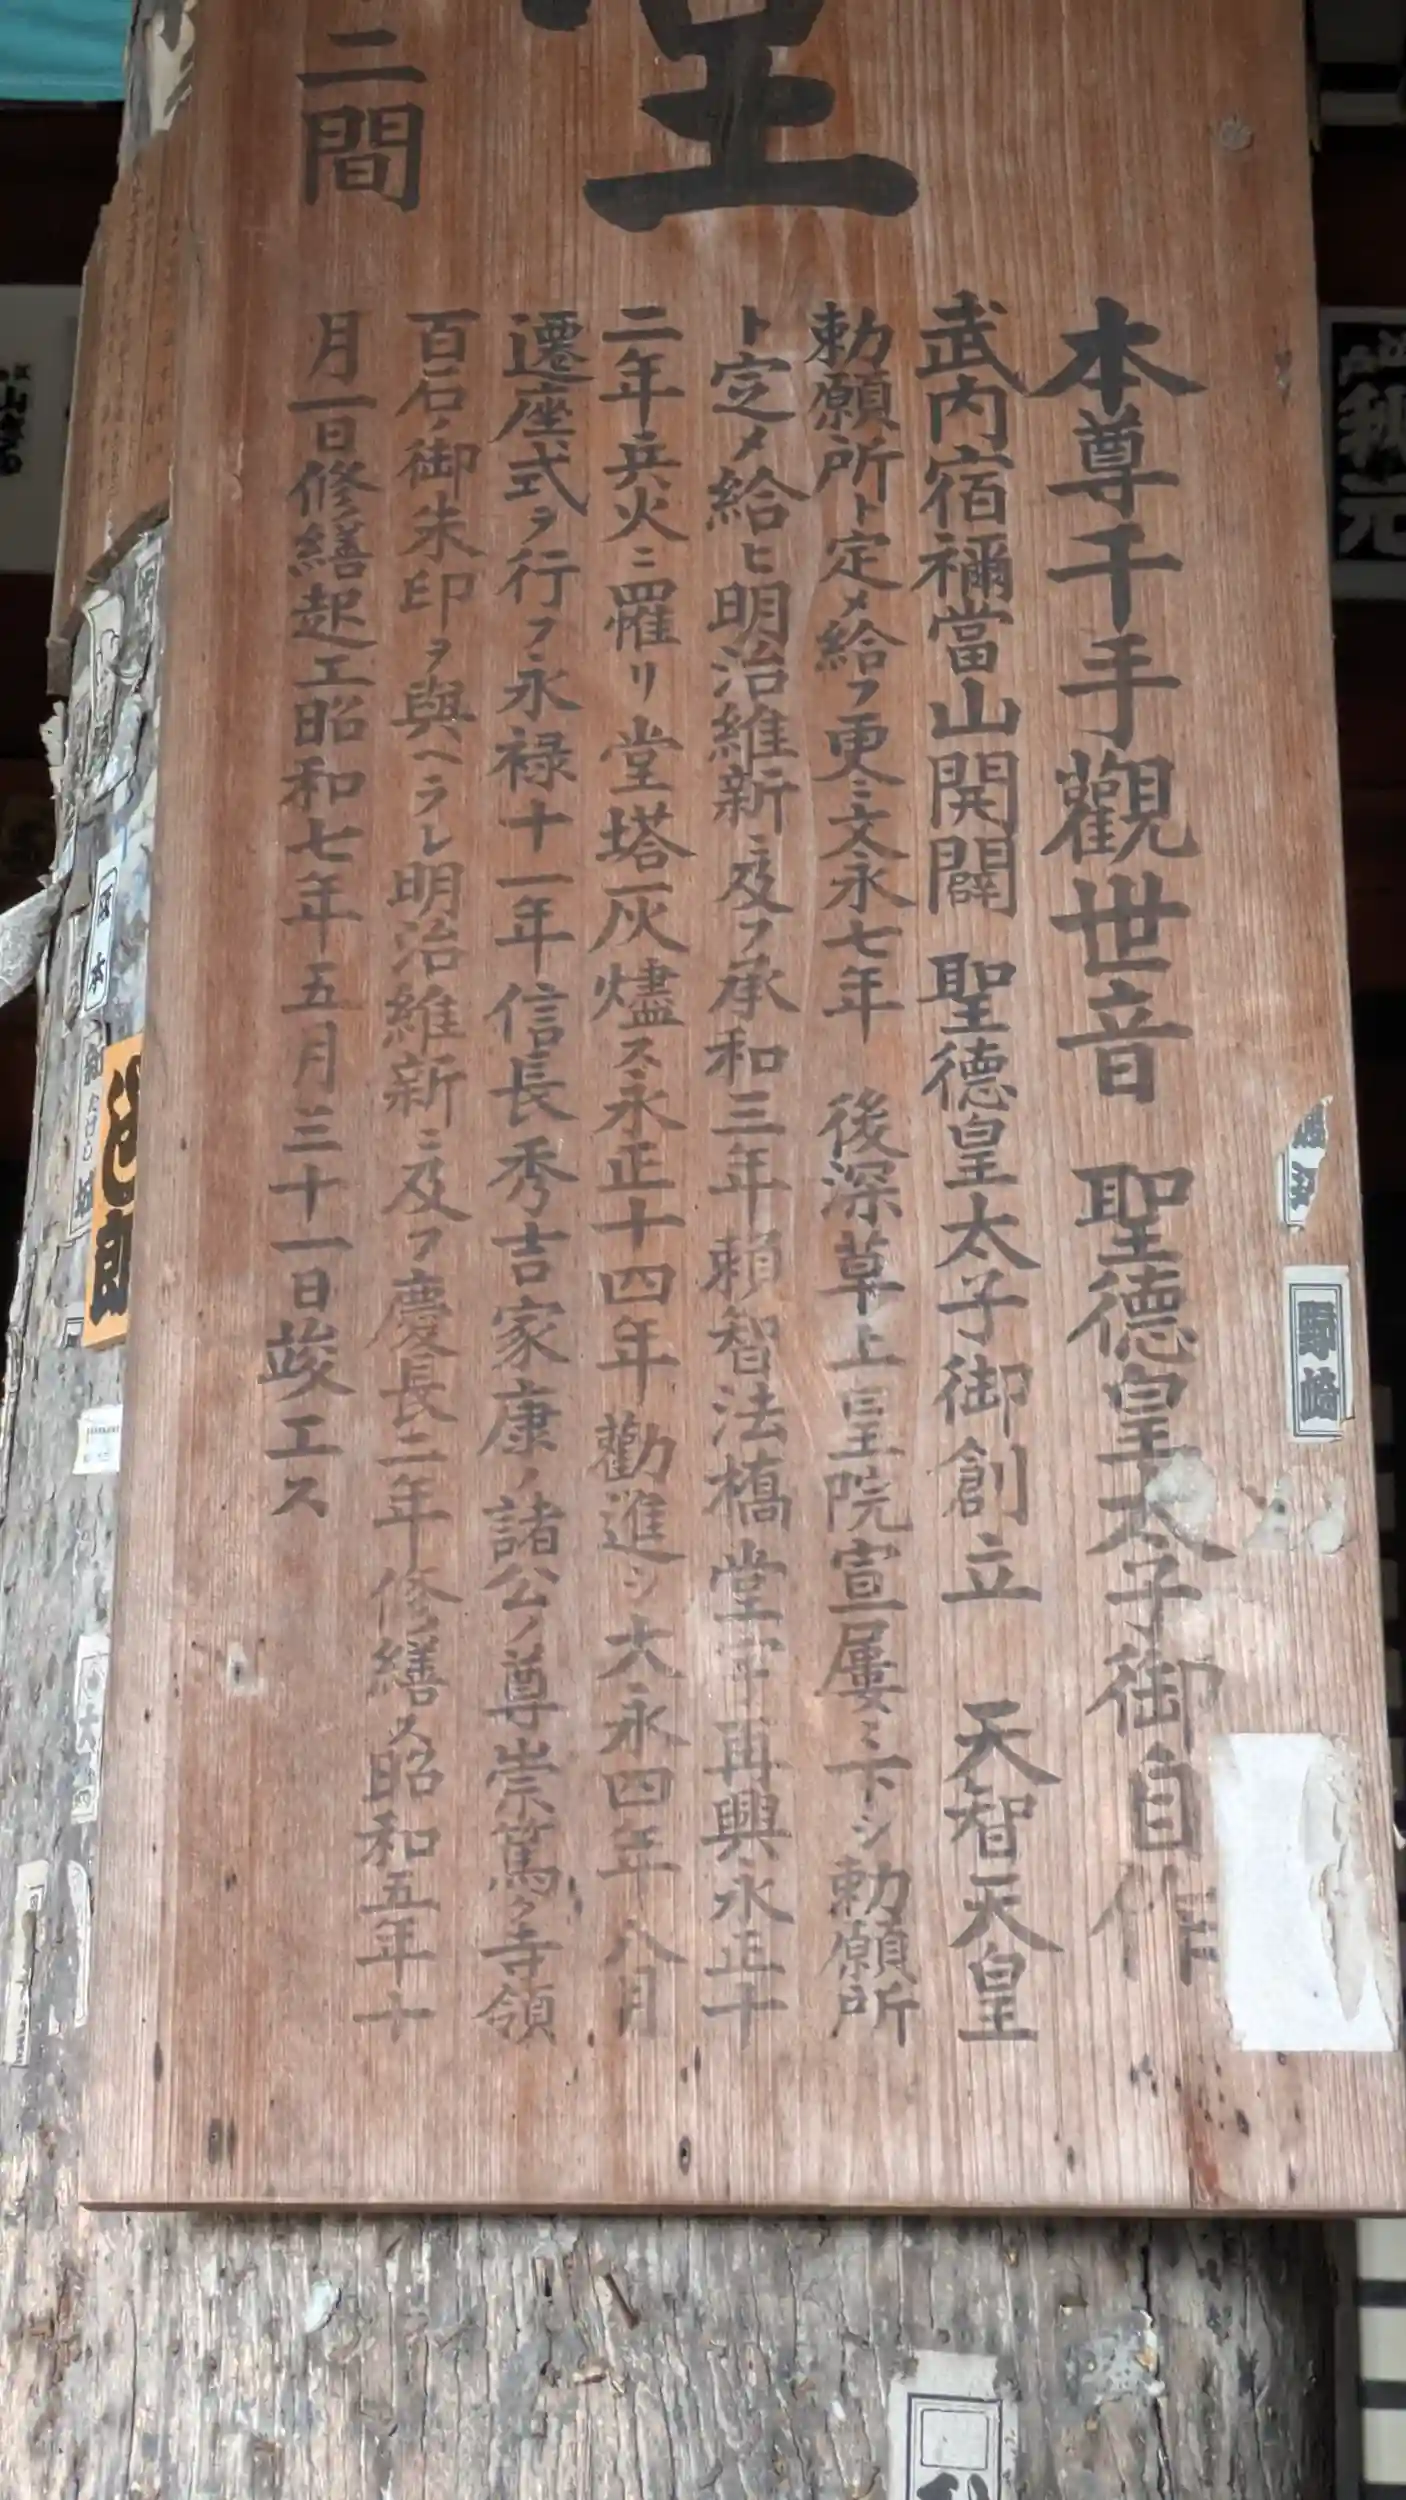 堂
二間
本尊千手觀世音 聖德皇太子御自作
武内宿禰當山開闢 聖德皇太子御創立 天智天皇
勅願所ト定メ給フ更ニ文永七年 後深草上皇院宣屢ミ下シ勅願所
ト定メ給ヒ明治維新ニ及フ承和三年賴智法橋堂宇ヲ再興永正十
二年兵火ニ罹リ堂塔灰燼ス永正十四年勸進シ大永四年八月
遷座式ヲ行フ永禄十一年信長秀吉家康ノ諸公ノ尊崇篤ク寺領
百石ノ御朱印ヲ與ヘラレ明治維新ニ及フ慶長二年修繕ス昭和五年十
月一日修繕起工昭和七年五月三十一日竣工ス
野崎